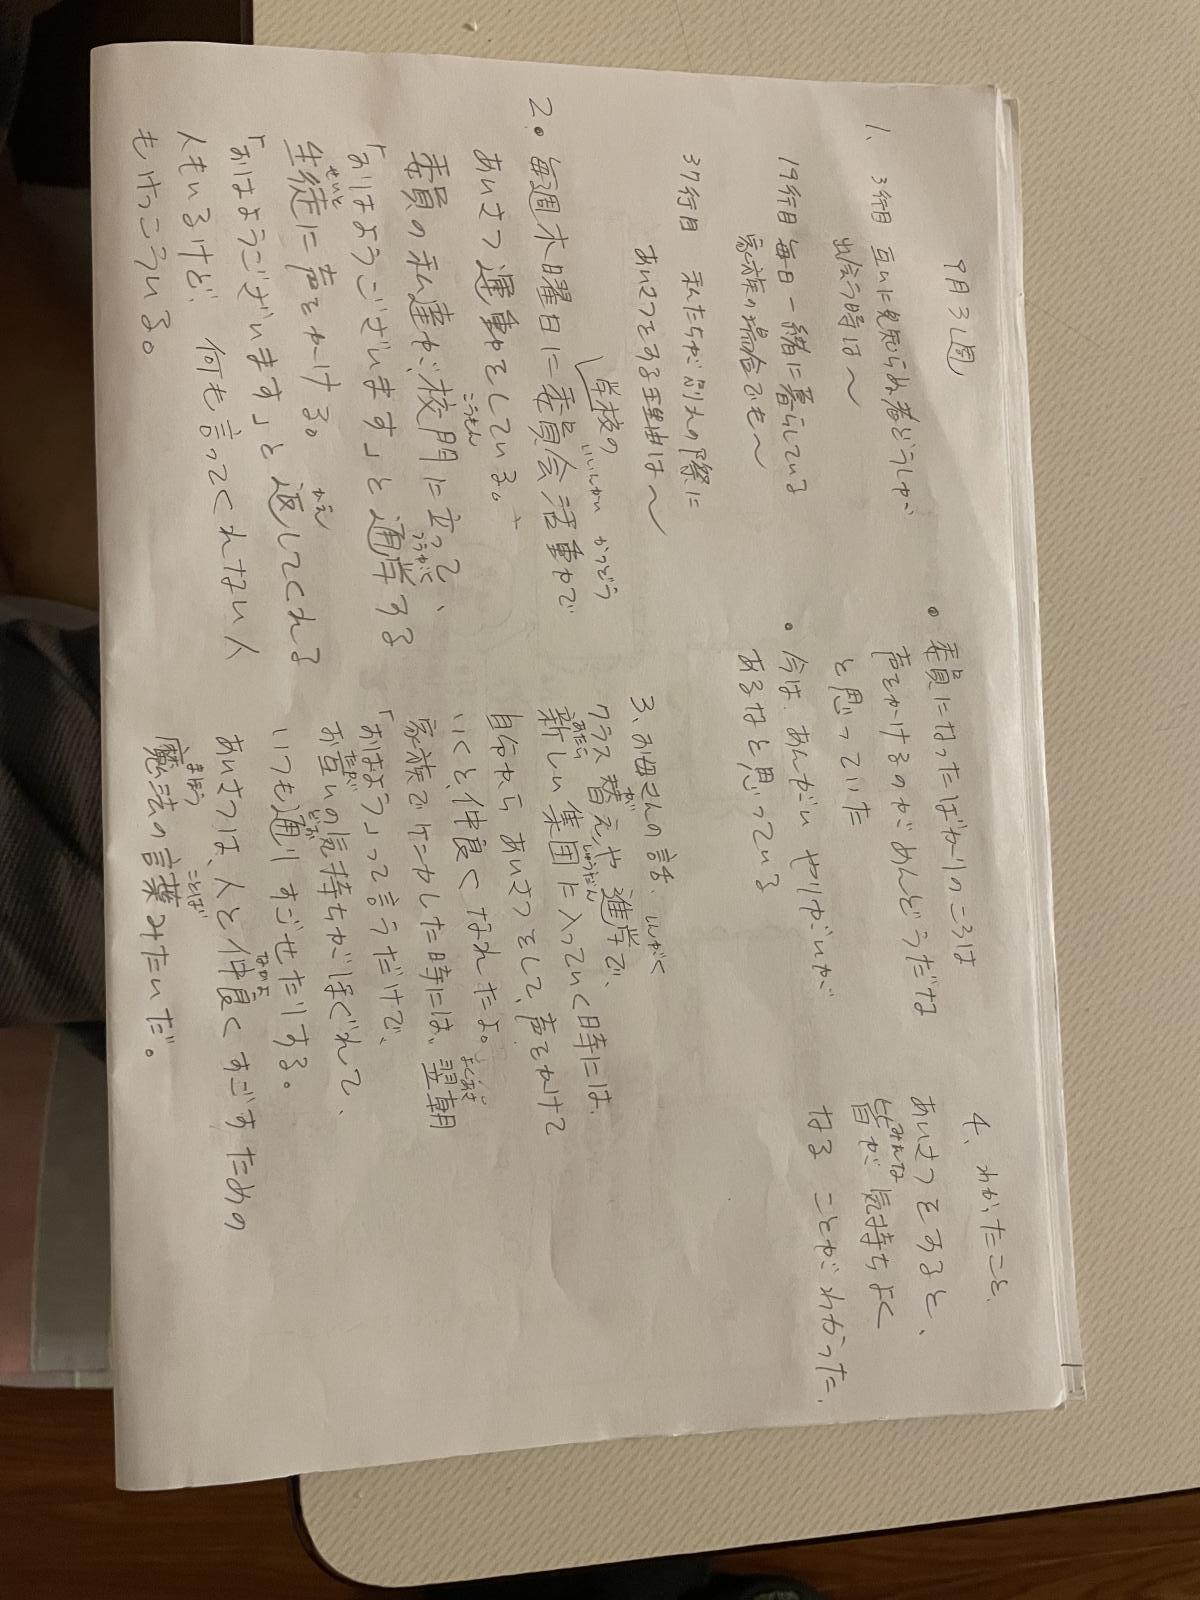 9月3週
1、3行目 互いに見知らぬ者どうしが
出会う時は〜
19行目 毎日一緒に暮らしている
家族の場合でも〜
37行目 私たちが別れの際に
あいさつをする理由は〜
学校の
いいんかい かつどう
2。毎週木曜日に委員会活動で
あいさつ運動をしている。
こうもん
委員の私達が、校門に立って、
つうがく
「おはようございます」と通学する
せいと
生徒に声をかける。
かえ
「おはようございます」と返してくれる
人もいるけど、何も言ってくれない人
もけっこういる。
・委員になったばかりのころは
声をかけるのがめんどうだな
と思っていた
・今は、あんがいやりがいが
あるなと思っている
3、お母さんの話、
が しんがく
クラス替えや進学で、
あたら しゅうだん
新しい集団に入っていく時には、
自分からあいさつをして、声をかけて
いくと、仲良くなれたよ。
よくあさ
家族でケンカした時には、翌朝
「おはよう」って言うだけで、
たが きも
お互いの気持ちがほぐれて、
いつも通りすごせたりする。
なかよ
あいさつは、人と仲良くすごすための
まほう ことば
魔法の言葉みたいだ。
4、わかったこと、
あいさつをすると、
みんな
皆が気持ちよく
なることがわかった、